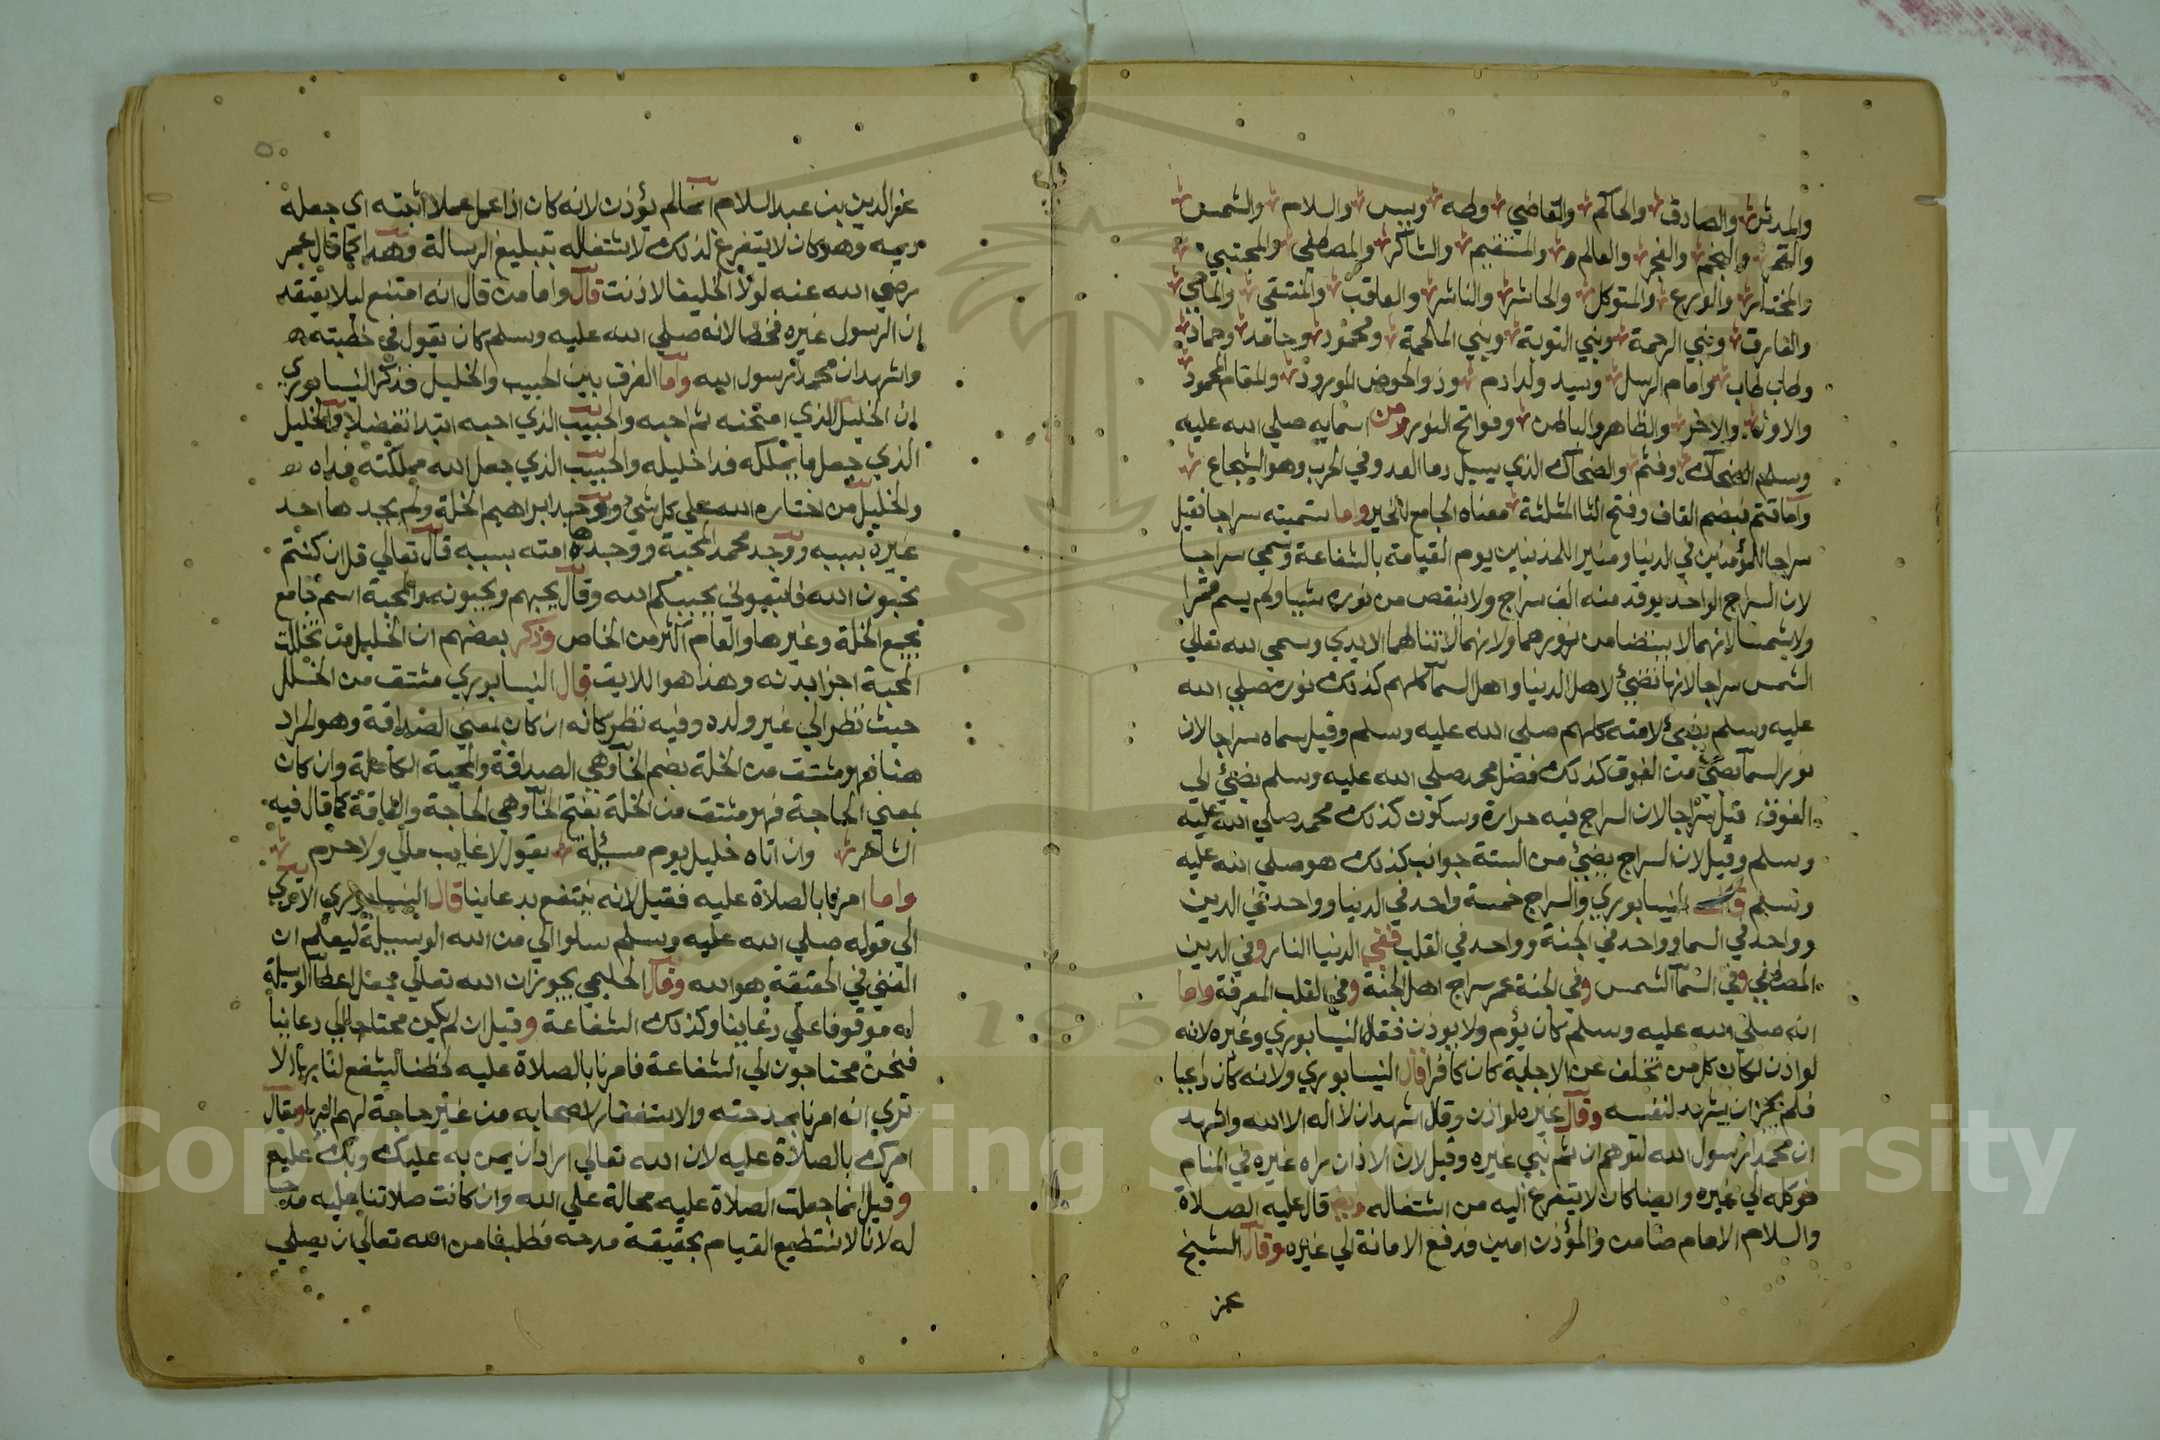 والمدثر والصادق والحاكم والقاضي وطه ويس والسلام والشمس
والقمر والنجم والفجر والعالم والمستقيم والشاكر والمصطفي والمجتبي
والمختار والورع والمتوكل والحاشر والناشر والعاقب والمنتقي والماحي
والفارق ونبي الرحمة ونبي التوبة ونبي الملحمة ومحمود وحامد وحماد
وطاب طاب وامام الرسل وسيد ولد ادم وذو الحوض المورود والمقام المحمود
والاول والاخر والظاهر والباطن وفواتح النور ومن اسمايه صلي الله عليه
وسلم الضحاك وقثم والضحاك الذي يسيل دما العدو في الحرب وهو الشجاع
واما قثم فبضم القاف وفتح الثا المثلثة معناه الجامع للخير واما تسميته سراجا فقيل
سراجا للمؤمنين في الدنيا ومنيرا للمذنبين يوم القيامة بالشفاعة وسمي سراجا
لان السراج الواحد يوقد منه الف سراج ولا ينقص من نوره شيا ولم يسم قمرا
ولا شمسا لانهما لا يقتضا من نورهما ولانهما لا تنالهما الايدي وسمي الله تعالي
الشمس سراجا لانها تضئ لاهل الدنيا واهل السما كلهم كذلك نوره صلي الله
عليه وسلم يضئ لامته كلهم صلي الله عليه وسلم وقيل سماه سراجا لان
نور السما يضئ من الفوق كذلك فضل محمد صلي الله عليه وسلم يضئ الي
الفوق قيل سراجا لان السراج فيه حرارة وسكون كذلك محمد صلي الله عليه
وسلم وقيل لان السراج يضئ من الستة جوانب كذلك هو صلي الله عليه
وسلم قال النيسابوري والسراج خمسة واحد في الدنيا وواحد في الدين
وواحد في السما وواحد في الجنة وواحد في القلب ففي الدنيا النار وفي الدين
المصطفي وفي السما الشمس وفي الجنة عمر سراج اهل الجنة وفي القلب المعرفة واما
انه صلي الله عليه وسلم كان يؤم ولا يوذن فقال النيسابوري وغيره لانه
لو اذن لكان كل من تخلف عن الاجابة كان كافرا قال النيسابوري ولانه كان داعيا
فلم يجز ان يشهد لنفسه وقال غيره لو اذن وقال اشهد ان لا اله الا الله واشهد
ان محمدا رسول الله لتوهم ان ثم نبي غيره وقيل لان الاذان راه غيره في المنام
فوكله الي غيره وايضا كان لا يتفرغ اليه من اشتغاله قال عليه الصلاة
والسلام الامام ضامن والمؤذن امين فدفع الامانة الي غيره وقال الشيخ
عز
عز الدين بن عبد السلام انما لم يؤذن لانه كان اذا عمل عملا اثبته اي جعله
ديمه وهو كان لا يتفرغ لذلك لاشتغاله بتبليغ الرسالة وهذا كما قال عمر
رضي الله عنه لولا الخليفا لاذنت قال واما من قال انه امتنع ليلا يعتقد
ان الرسول غيره فخطا لانه صلي الله عليه وسلم كان يقول في خطبته
واشهد ان محمدا رسول الله واما الفرق بين الحبيب والخليل فذكر النيسابوري
ان الخليل الذي امتحنه ثم احبه والحبيب الذي احبه ابتدا تفضلا والخليل
الذي جعل ما يملكه فدا خليله والحبيب الذي جعل الله مملكته فداه
والخليل من اختاره الله علي كل شئ ووجد ابراهيم الخلة ولم يجدها احد
غيره بسببه ووجد محمد المحبة ووجده امته بسببه قال تعالي قل ان كنتم
تحبون الله فاتبعوني يحببكم الله وقال يحبهم ويحبونه والمحبة اسم جامع
يجمع الخلة وغيرها والعام اكثر من الخاص وذكر بعضهم ان الخليل من تخللت
المحبة اجزا بدنه وهذا هو اللايق قال النيسابوري مشتق من الخلل
حيث نظر الي غير ولده وفيه نظر كانه ان كان بمعني الصداقة وهو المراد
هنا فهو مشتق من الخلة بضم الخا وهي الصداقة والمحبة الكاملة وان كان
بمعني الحاجة فهو مشتق من الخلة بفتح الخا وهي الحاجة والفاقة كما قال فيه
الشاعر وان اتاه خليل يوم مسئلة يقول لا غايب مالي ولا حرم
واما امرنا بالصلاة عليه فقيل لانه ينتفع بدعاينا قال النيسابوري الا تري
الي قوله صلي الله عليه وسلم سلوا لي من الله الوسيلة ليعلم ان
الغني في الحقيقة هو الله وقال الحليمي يجوز ان الله تعالي يجعل اعطا الوسيلة
له موقوفا علي دعاينا وكذلك الشفاعة وقيل ان لم يكن محتاجا الي دعاينا
فنحن محتاجون الي الشفاعة فامرنا بالصلاة عليه لحظنا ليشفع لنا بها الا
تري انه امرنا بمدحته والاستغفار لاصحابه من غير حاجة لهم اليها ويقال
امرك بالصلاة عليه لان الله تعالي اراد ان يمن به عليك وبك عليه
وقيل انما جعلت الصلاة عليه محالة علي الله وان كانت صلاتنا عليه مدحا
له لانا لا نستطيع القيام بحقيقة مدحه فطلبنا من الله تعالي ان يصلي
Copyright © King Saud University
1957